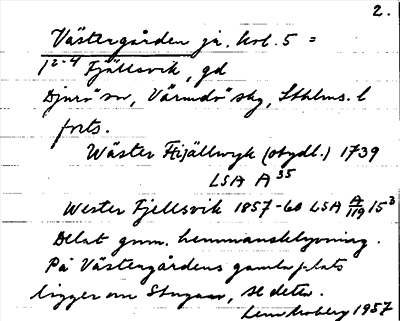 2.
Västergården jä. kol. 5 =
1²⁻⁴ Fjällsvik, gd
Djurö sn, Värmdö skg, Sthlms. l
forts.
Wäster Fiijällwyk (otydl.) 1739
LSA A³⁵
Wester Fjellsvik 1857-60 LSA A/119 15³
Delat gnm. hemmansklyvning.
På Västergårdens gamla plats
ligger nu Stugan, se detta.
Moberg 1957